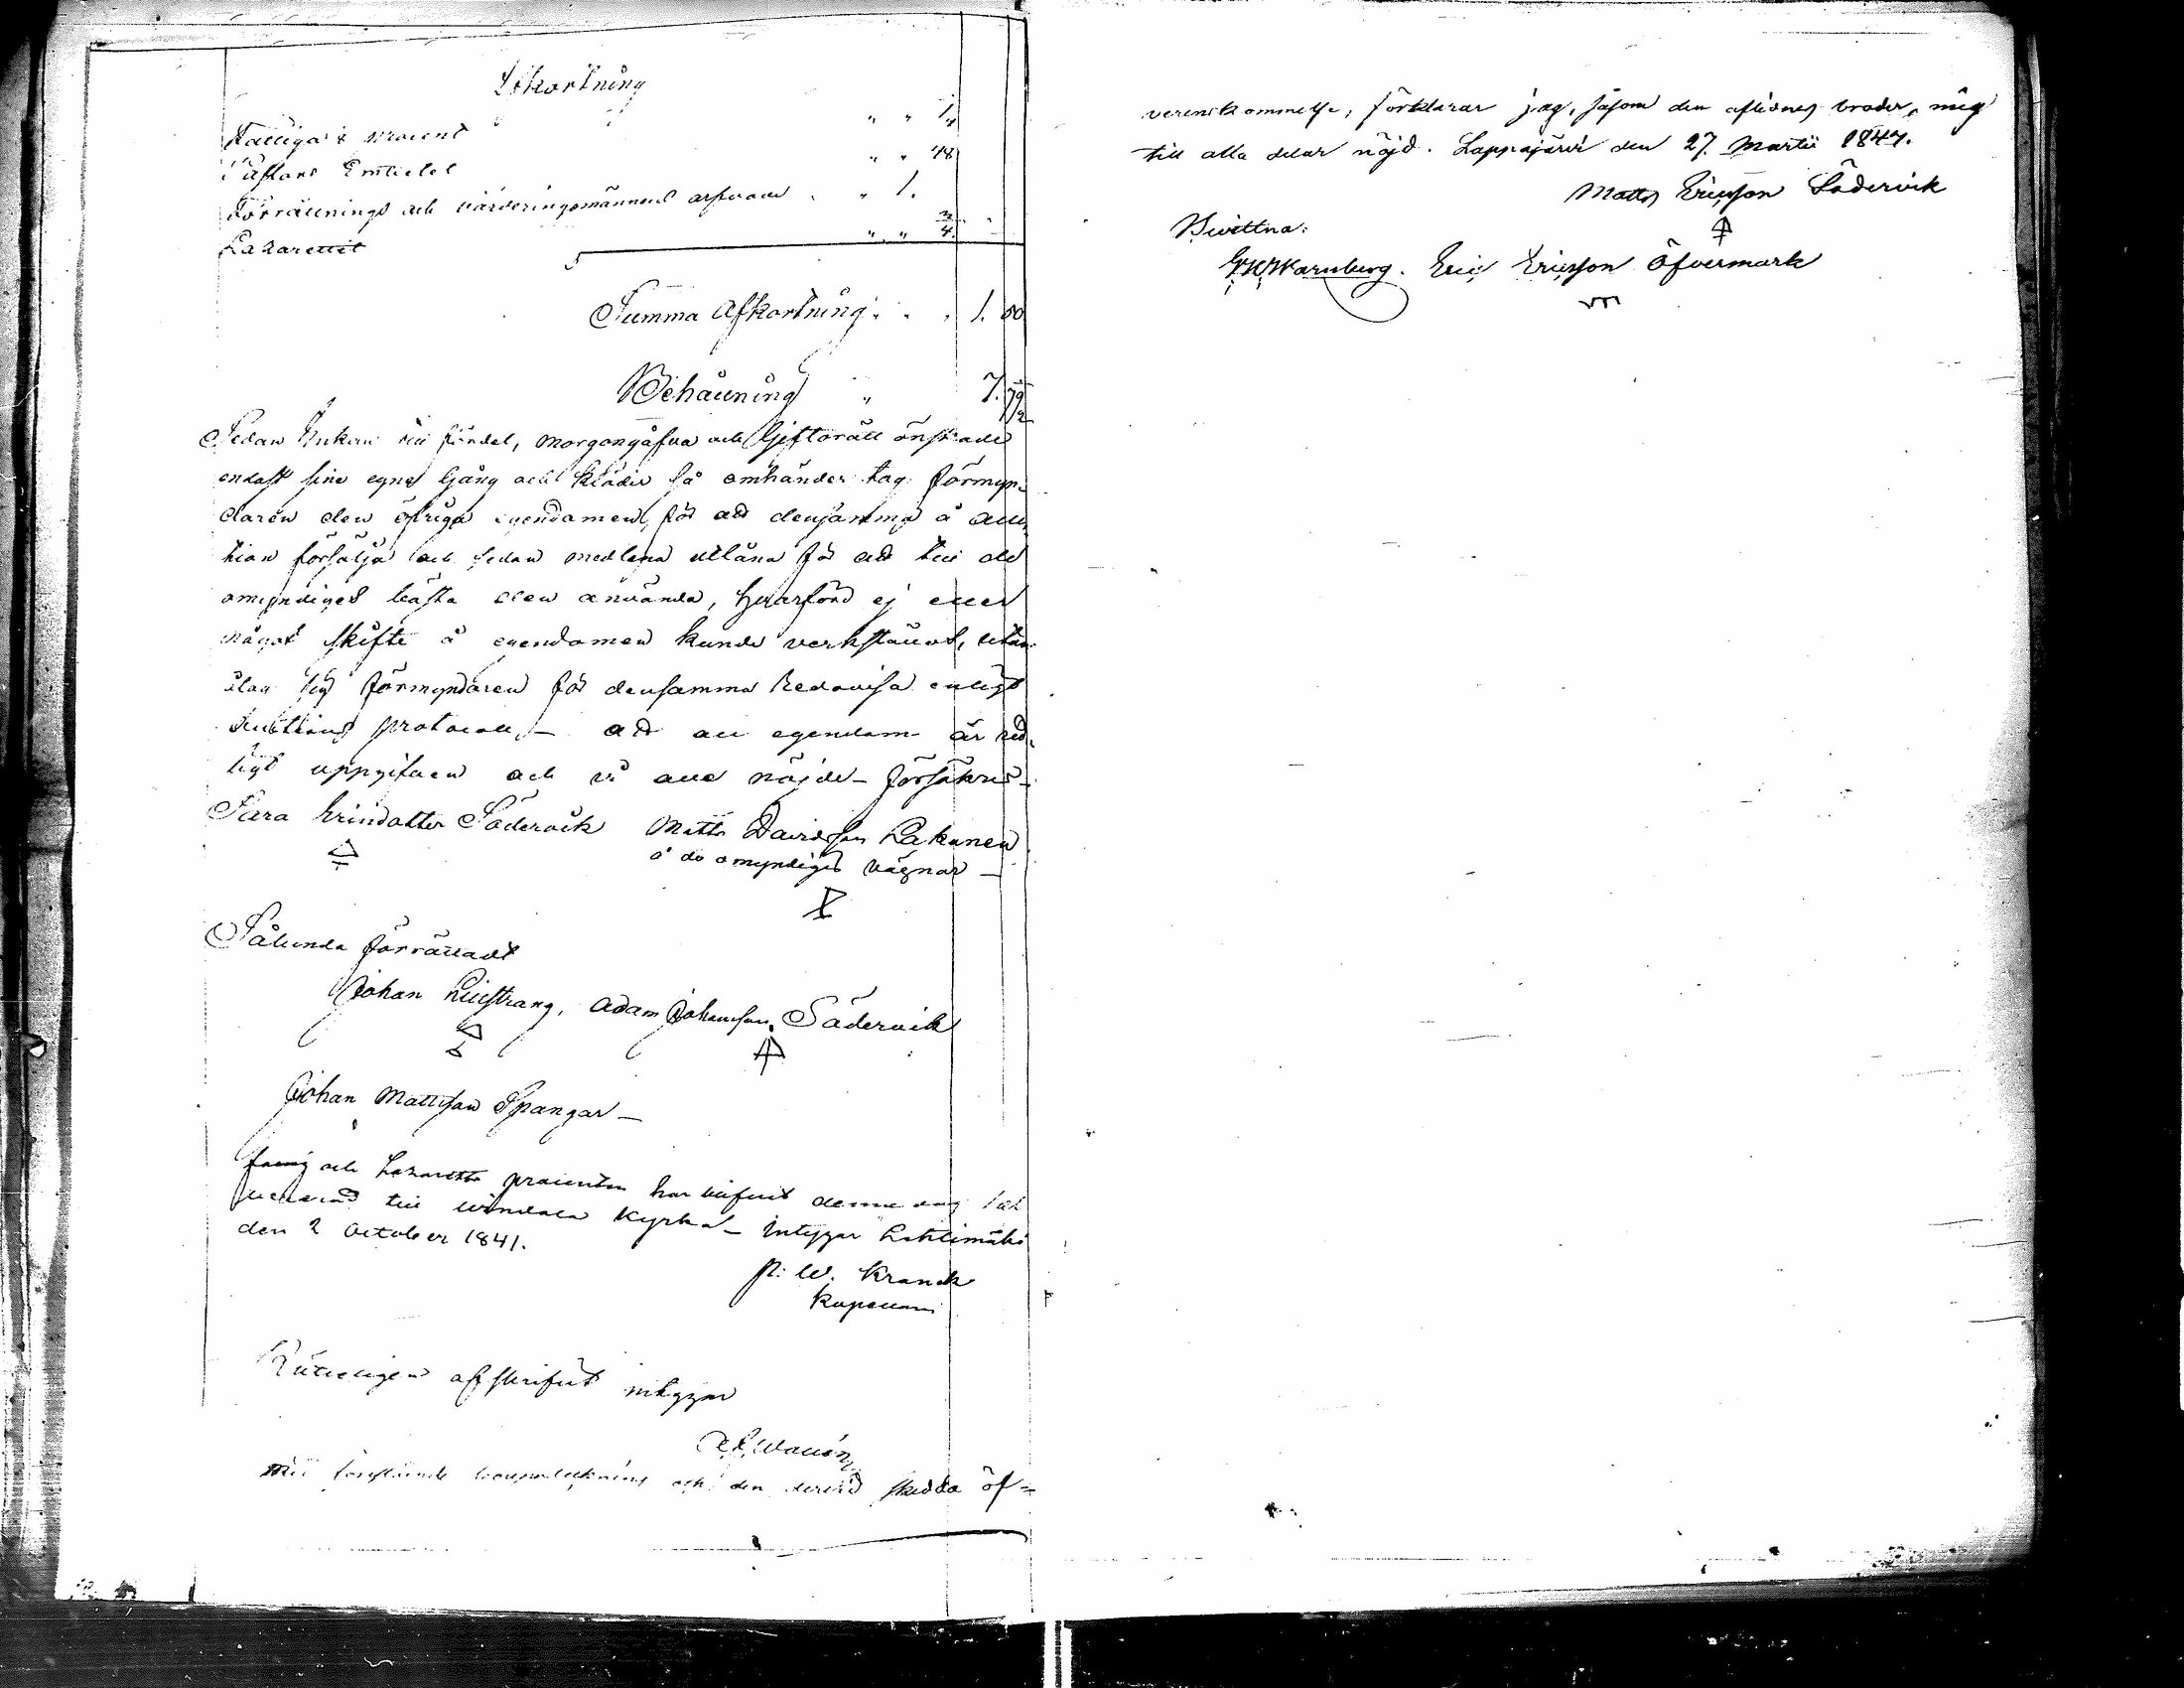 Afkortning
Fattiga procent " " 1/4
" " 48
Förrättnings och värderingsmännens arfvode " 1.
Lazarettet " " 3/4
Summa Afkortning . . 1. 50
Behållning " 7. 79 1/2
Sedan Enkan till fördel, morgongåfva och Giftorätt önskade
endast sine egne Gång och Kläder så omhänder tog Förmyn-
daren den öfriga egendomen, för att densamma å auc-
tion försälja och sedan medlena utlåna för att till de
omyndiges bästa den använda, hvarföre ej eller
något skifte å egendomen kunde verkställas, utan
åtog sig Förmyndaren för densamma redovisa enligt
Auctions protocoll, – att all egendom är red-
ligt uppgifven och vi alla nöjde – försäkras –
Sara Ericsdotter Södervik Matts Davidsson Lakanen
å de omyndiges vägnar –
Sålunda förrättadt
Johan Liljstrang, Adam Johansson Södervik
Johan Mattsson Spangar –
Fattig och Lazaretts procenten har blifvit denne dag
till Windala Kyrka – intygar Lehtimäki
den 2 October 1841.
P: W. Kranck
Kapellan
Riktigen afskrifvit intygar
Med förestående bouppteckning och den dervid skedda öf-
verenskommelse, förklarar jag, såsom den aflidnes broder, mig
till alla delar nöjd. Lappajärvi den 27. Martii 1847.
Matts Ericsson Södervik
Bevittna:
Warnberg. Eric Ericsson Öfvermark